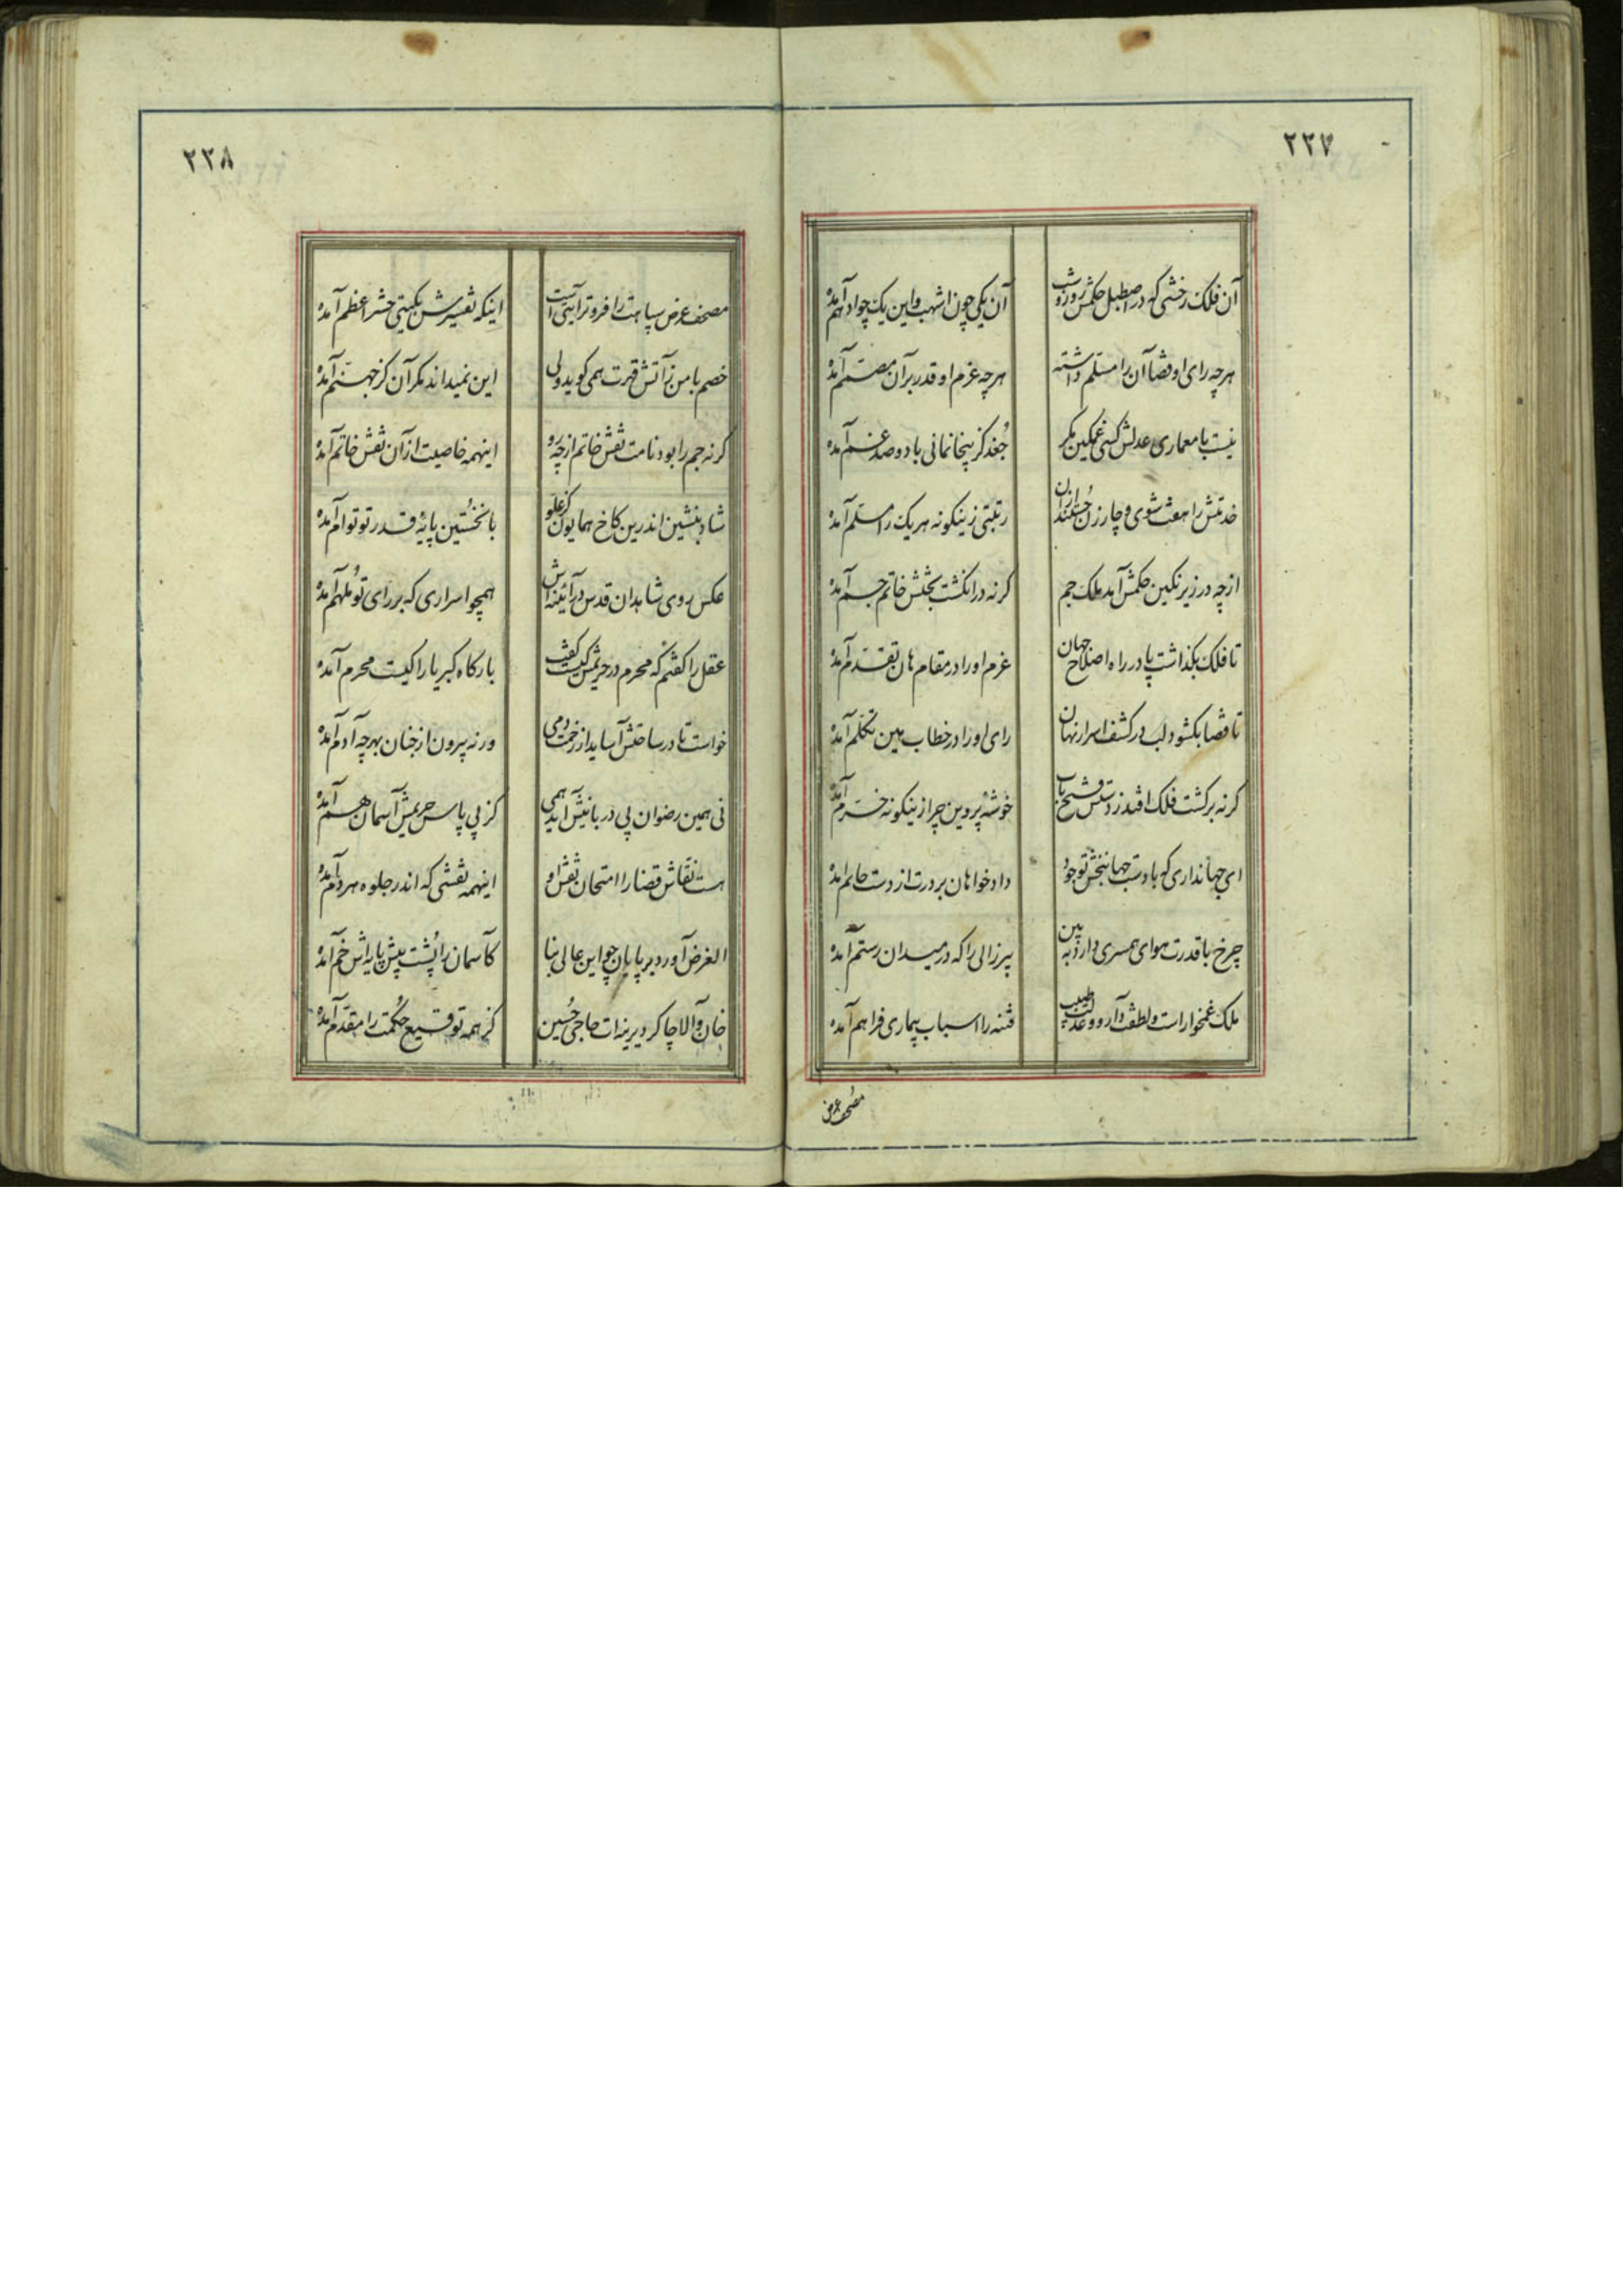 ۲۲۷
آن فلک رخشی که در اصطبل حکمش روز و شب
آن یکی چون اشهب و این یک چو ادهم آمده
هرچه رای او قضا آن را مسلم داشته
هرچه عزم او قدر بر آن مصمم آمده
نیست با معماری عدلش کسی غمگین مکر
جغد کز بیخانمانی با دو صد غم آمده
خدمتش را هفت شوی و چار زن جستند از آن
رتبتی زینکونه هر یک را مسلم آمده
از چه در زیر نکین حکمش آمد ملک جم
کرنه در انکشت بختش خاتم جم آمده
تا فلک بکذاشت پا در راه اصلاح جهان
عزم او را در مقام هان تقدم آمده
تا قضا بکشود لب در کشف اسرار نهان
رای او را در خطاب بین تکلم آمده
کرنه بر کشت فلک افتد ز دستش فتح باب
خوشه پروین چرا زینکونه خرم آمده
ای جهانداری که با دست جهانبخش تو جود
دادخواهان بر درت از دست حاتم آمده
چرخ با قدرت هوای همسری دارد ببین
پیرزالی را که در میدان رستم آمده
ملک غمخوار است و لطفت دارو و عدلت طبیب
فتنه را اسباب بیماری فراهم آمده
مصحف عرض
۲۲۸
مصحف عرض سپاهت را فروتر آیتی است
اینکه تفسیرش بکیتی حشر اعظم آمده
خصم با من ز آتش قهرت همی کوید ولی
این نمیداند مکر آن کز جهنم آمده
کرنه جم را بود نامت نقش خاتم از چه رو
اینهمه خاصیت از آن نقش خاتم آمده
شاد بنشین اندرین کاخ همایون کز علو
با نخستین پایه قدر تو توام آمده
عکس روی شاهدان قدس در آئینه اش
همچو اسراری که بر رای تو ملهم آمده
عقل را کفتم که محرم در حریمش کیست کفت
بارکاه کبریا را کیست محرم آمده
خواست تا در ساحتش آساید از زحمت دمی
ورنه بیرون از جنان بهر چه آدم آمده
نی همین رضوان پی دربانیش آید همی
کز پی پاس حریمش آسمان هم آمده
هست نقاش قضا را امتحان نقش او
اینهمه نقشی که اندر جلوه هر دم آمده
الغرض آورد بر پایان چو این عالی بنا
کآسمان را پشت پیش پایه اش خم آمده
خان والا چاکر دیرینه ات حاجی حسین
کز همه توقیع حکمت را مقدم آمده